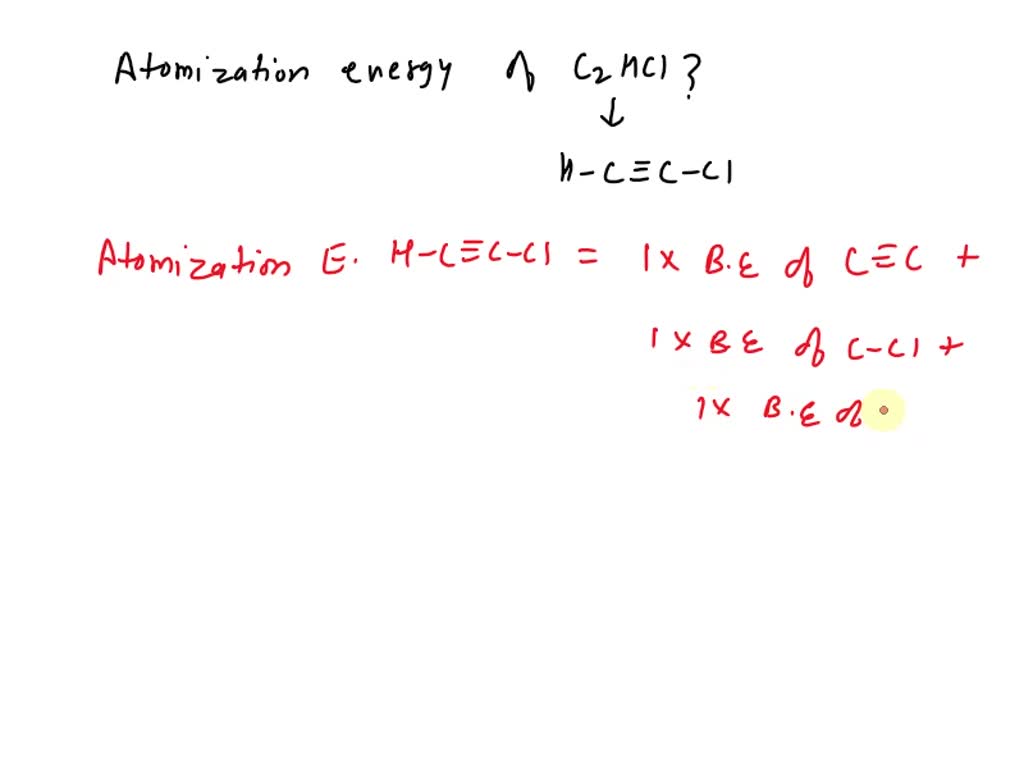 Atomization energy of C2HCl?
↓
H-C≡C-Cl
Atomization E. H-C≡C-Cl = 1x B.E of C≡C +
1x BE of C-Cl +
1x B.E of